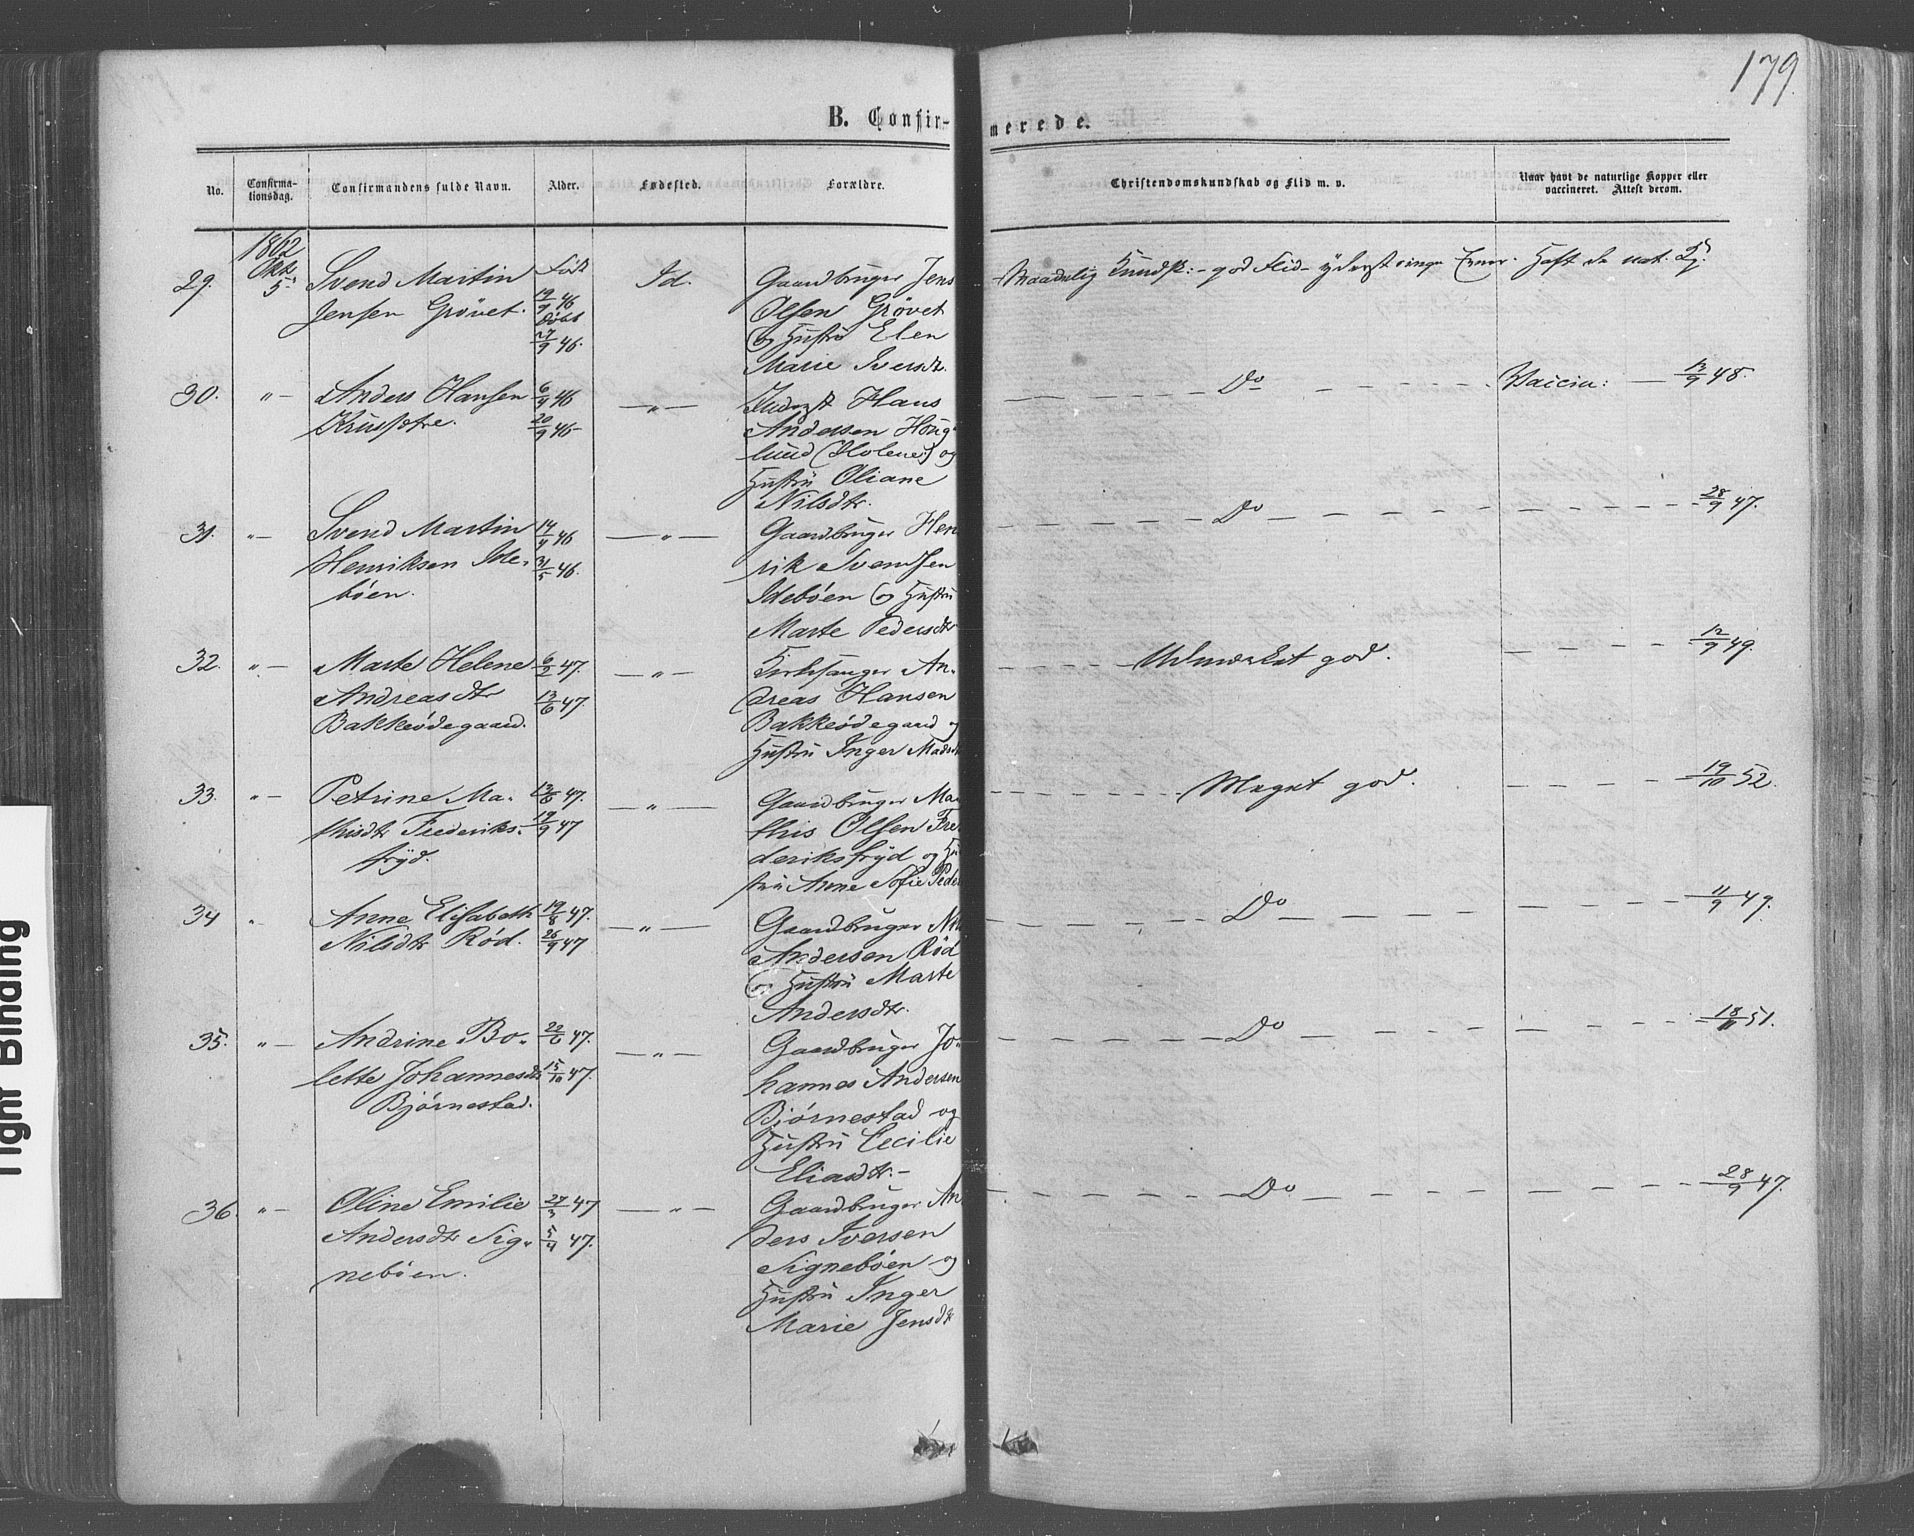 179.
B. Confir-
merede.
No.
Confirma-
tionsdag.
Confirmandens fulde Navn.
Alder.
Fødested.
Forældre.
Christendomskundskab og Flid m. v.
Naar havt de naturlige Kopper eller
vaccineret. Attest derom.
1862
Okt.
5.
29.
Svend Martin
Jensen Grövet.
Født
19/9 46
Døbt
27/9 46.
Id.
Gaardbruger Jens
Olsen Grövet
og Hustru Elen
Marie Iversdtr.
Maadelig Kundsk: - god Flid - yderst ringe Evner.
Haft de nat. K.
30.
"
Anders Hansen
6/9 46
20/9 46
"
Inderst Hans
Andersen Houg-
lund (Holene) og
Hustru Oliane
Nilsdtr.
Do
Vaccin: 13/9 48.
31.
"
Svend Martin
Henriksen Ide-
böen.
14/4 46
31/5 46.
"
Gaardbruger Hen
rik Svendsen
Ideböen og Hustru
Marte Pedersdtr
Do
28/9 47.
32.
"
Marte Helene
Andreasdtr
Bakkeödegaard.
6/2 47.
13/6 47.
"
Kirkesanger An-
dreas Hansen
Bakkeödegaard og
Hustru Inger Madsdt
Udmærket god.
12/9 49.
33.
"
Petrine Ma-
thisdtr Frederiks-
fryd.
13/6 47.
19/9 47
"
Gaardbruger Ma
this Olsen Fre
deriksfryd og Hu
stru Anne Sofie Peder
Meget god.
19/10 52.
34
"
Anne Elisabeth
Nilsdtr Rød.
19/8 47.
26/9 47
"
Gaardbruger Nil
Andersen Rød
og Hustru Marte
Andersdtr.
Do
11/9 49.
35.
"
Andrine Bo-
lette Johannesdtr
Bjørnestad.
22/6 47.
15/10 47.
"
Gaardbruger Jo-
hannes Andersen
Bjørnestad og
Hustru Cecilie
Eliasdtr.
Do
18/11 51.
36.
"
Oline Emilie
Andersdtr Sig-
neböen.
27/3 47
5/4 47.
"
Gaardbruger An
ders Iversen
Signeböen og
Hustru Inger
Marie Jensdtr
Do
28/9 47.
Tight Binding